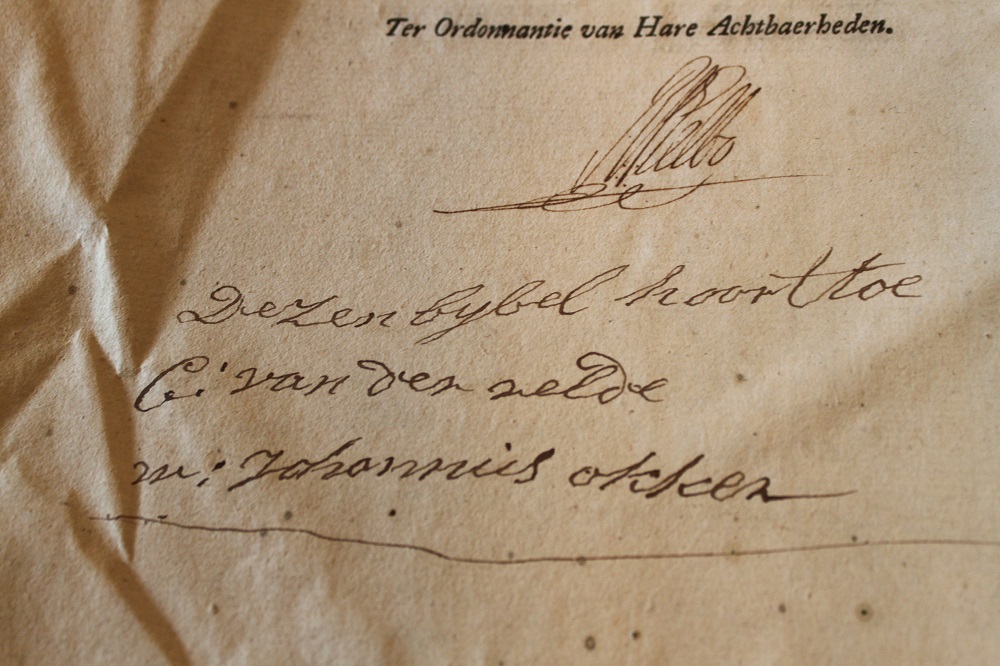 Ter Ordonnantie van Hare Achtbaerheden.
Dezen bybel hoort toe
C: van der velde
m: Johannus okker